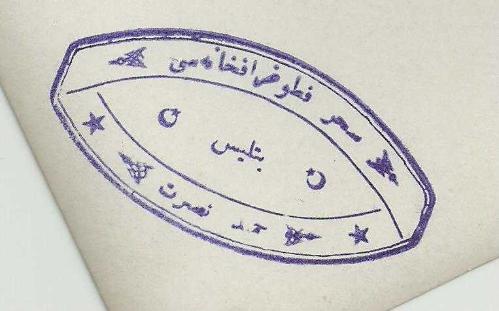 سحر فطوغرافخانه سی
بتلیس
حمد نصرت